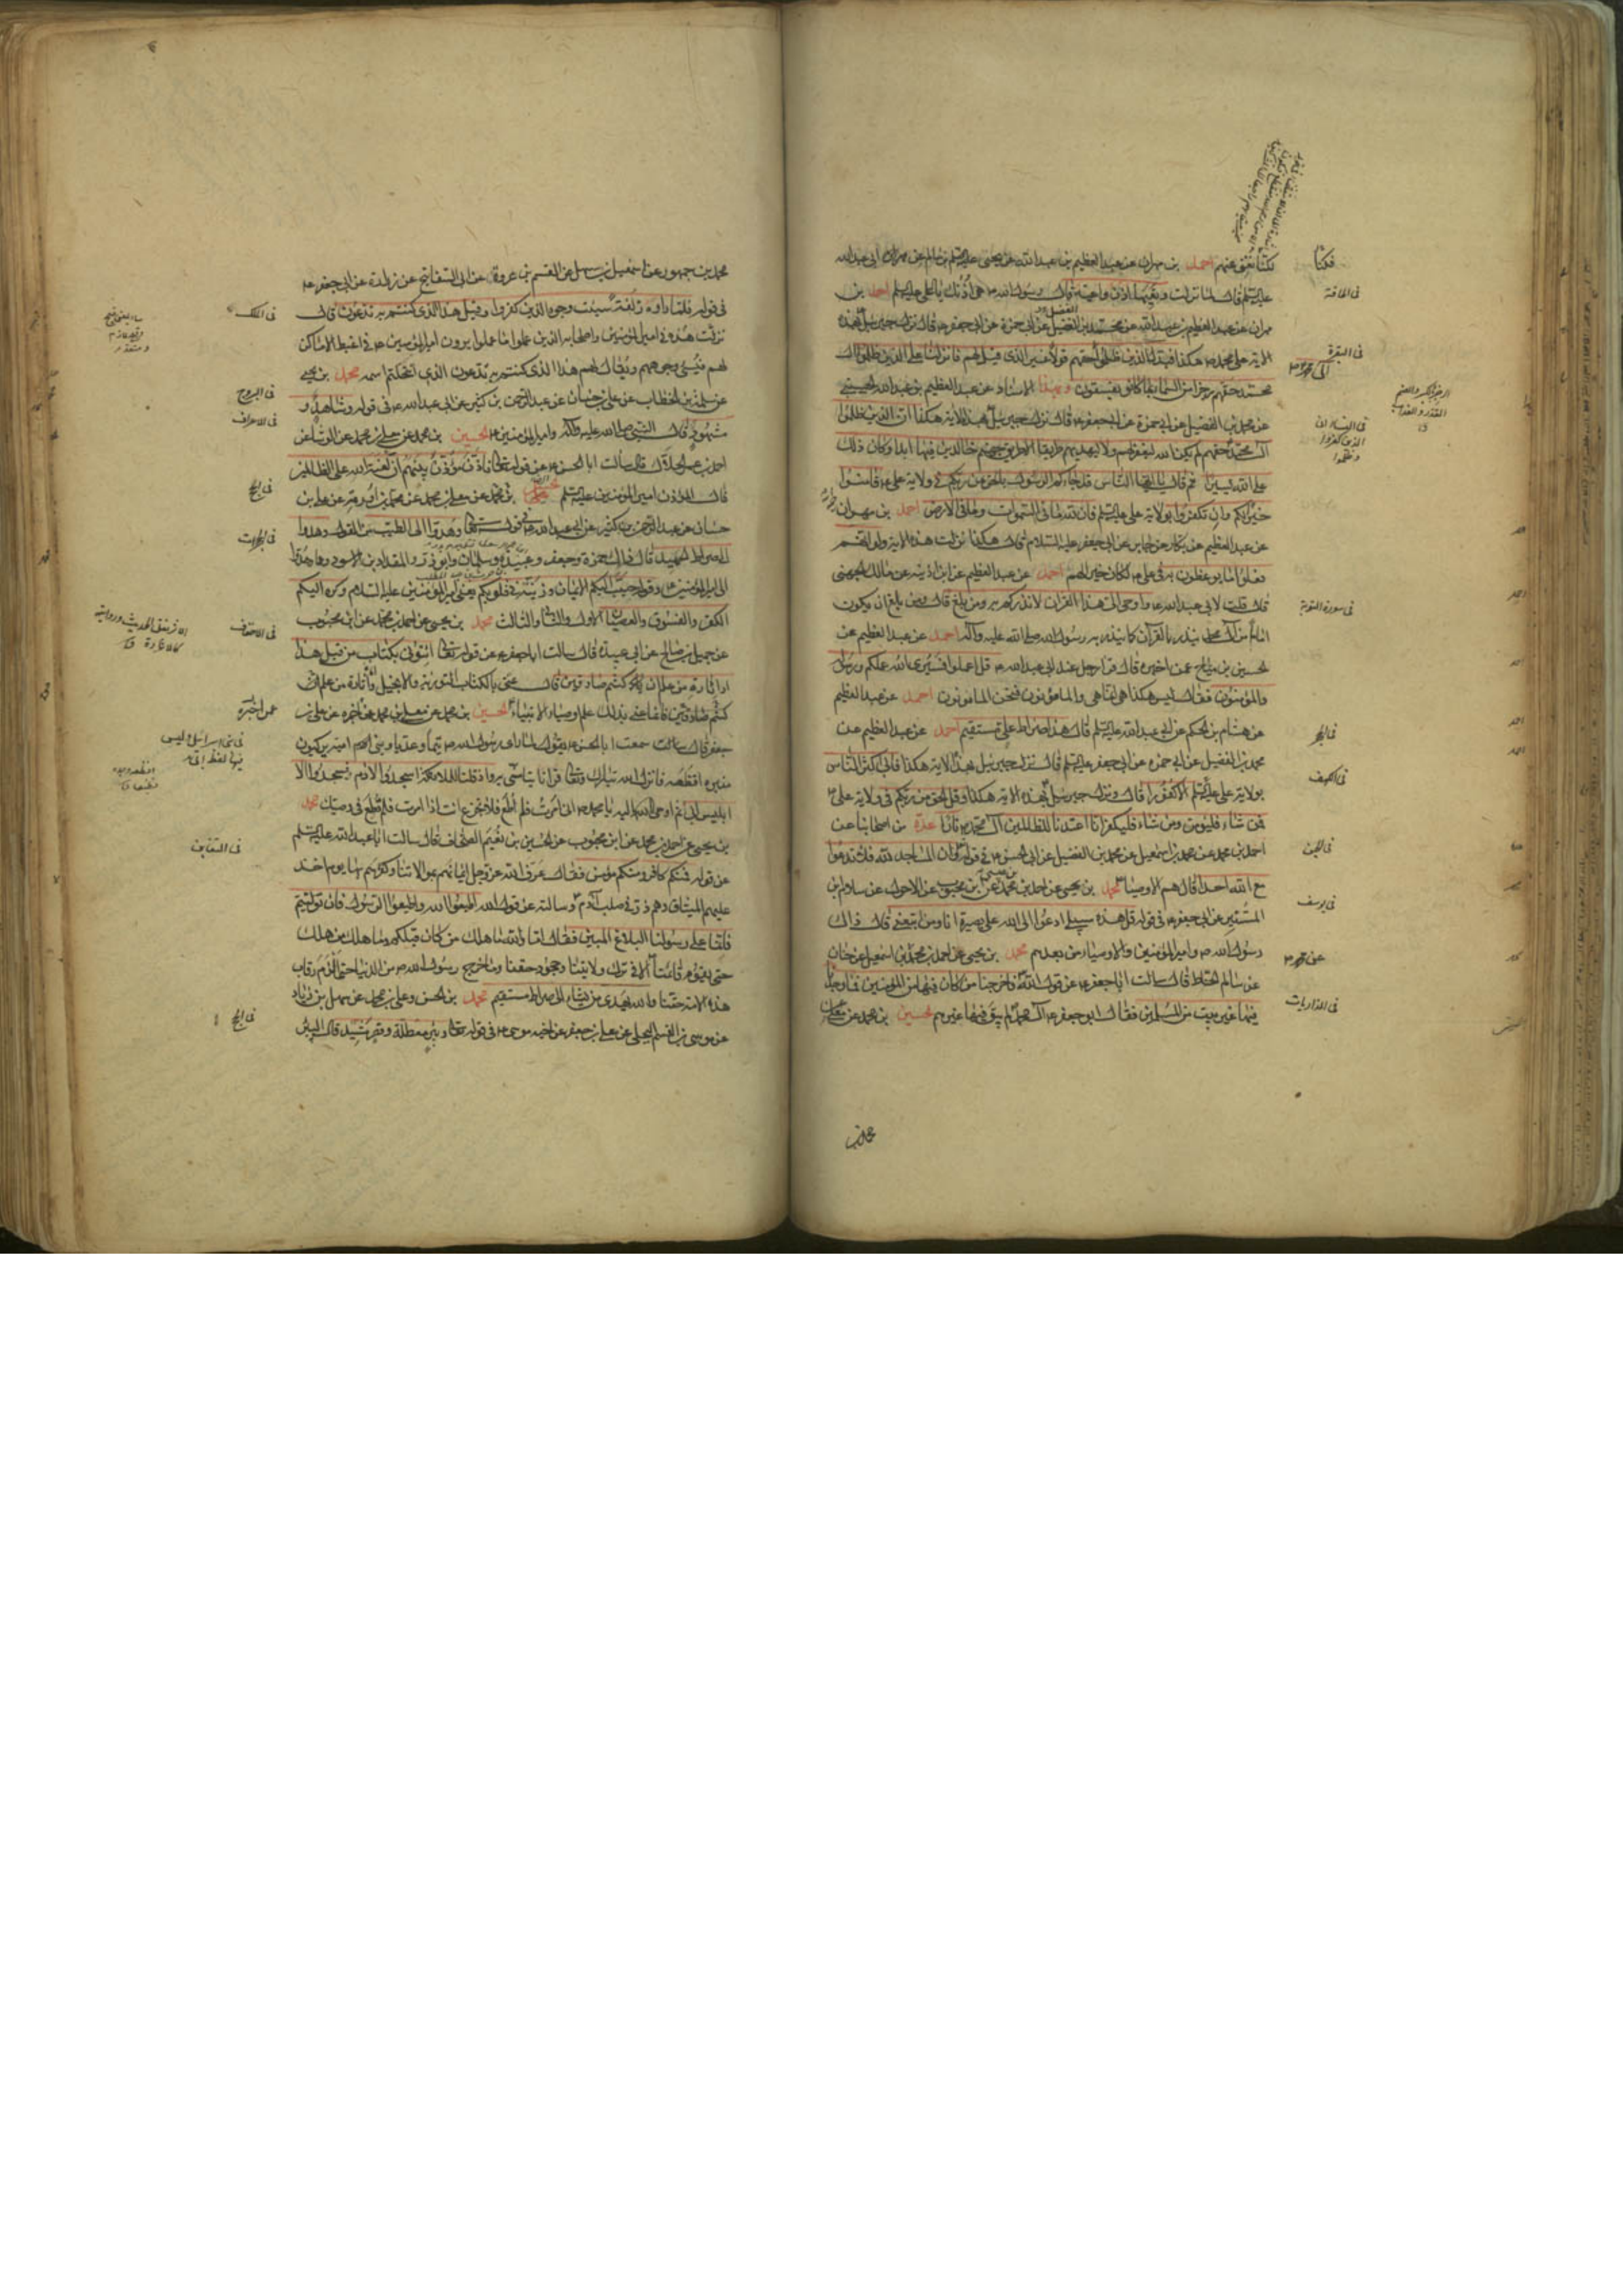 فكنّا
لكنّا نحن عنهم احمد بن مهران عن عبد العظيم بن عبد الله عن يحيى بن سالم عن ابى عبد الله
عليه السلم قال لما نزلت وتعيها اذن واعية قال رسول الله ص هى اذنك يا على احمد بن
مهران عن عبد العظيم بن عبد الله عن محمد بن الفضيل عن ابى حمزة عن ابى جعفر ع قال نزل جبرئيل بهذه
الاية على محمد ص هكذا فبدل الذين ظلموا آل محمد حقهم قولا غير الذى قيل لهم فانزلنا على الذين ظلموا آل
محمد حقهم رجزا من السماء بما كانوا يفسقون وبهذا الاسناد عن عبد العظيم بن عبد الله الحسنى
عن محمد بن الفضيل عن ابى حمزة عن ابى جعفر ع قال نزل جبرئيل بهذه الاية هكذا ان الذين ظلموا
آل محمد حقهم لم يكن الله ليغفر لهم ولا ليهديهم طريقا الا طريق جهنم خالدين فيها ابدا وكان ذلك
على الله يسيرا ثم قال يا ايها الناس قد جاءكم الرسول بالحق من ربكم فى ولاية على ع فامنوا
خيرا لكم وان تكفروا بولاية على عليه السلم فان لله ما فى السموات وما فى الارض احمد بن مهران
عن عبد العظيم عن بكار عن جابر عن ابى جعفر عليه السلام قال هكذا نزلت هذه الاية ولو انهم
فعلوا ما يوعظون به فى على ع لكان خيرا لهم احمد عن عبد العظيم عن ابن اذينة عن مالك الجهنى
قال قلت لابى عبد الله ع واوحى الى هذا القرآن لانذركم به ومن بلغ قال ومن بلغ ان يكون
اماما من آل محمد ينذر بالقرآن كما ينذر به رسول الله صلى الله عليه وآله احمد عن عبد العظيم عن
الحسين بن مياح عمن اخبره قال قرا رجل عند ابى عبد الله ع قل اعملوا فسيرى الله عملكم ورسوله
والمؤمنون فقال ليس هكذا هى انما هى والمامونون فنحن المامونون احمد عن عبد العظيم
عن هشام بن الحكم عن ابى عبد الله عليه السلم قال هذا صراط على مستقيم احمد عن عبد العظيم عن
محمد بن الفضيل عن ابى حمزة عن ابى جعفر عليه السلم قال نزل جبرئيل بهذه الاية هكذا فابى اكثر الناس
بولاية على عليه السلم الا كفورا قال ونزل جبرئيل بهذه الاية هكذا وقل الحق من ربكم فى ولاية على
فمن شاء فليؤمن ومن شاء فليكفر انا اعتدنا للظالمين آل محمد نارا عدة من اصحابنا عن
احمد بن محمد عن محمد بن اسمعيل عن محمد بن الفضيل عن ابى الحسن ع فى قوله وان المساجد لله فلا تدعوا
مع الله احدا قال هم الاوصياء محمد بن يحيى عن احمد بن محمد عن بن محبوب عن الاحول عن سلام بن
المستنير عن ابى جعفر ع فى قوله قل هذه سبيلى ادعوا الى الله على بصيرة انا ومن اتبعنى قال ذاك
رسول الله ص وامير المؤمنين والاوصياء من بعدهم محمد بن يحيى عن احمد بن محمد عن محمد بن اسمعيل عن حنان
عن سالم الحناط قال سالت ابا جعفر ع عن قول الله فاخرجنا من كان فيها من المؤمنين فما وجدنا
فيها غير بيت من المسلمين فقال ابو جعفر ع آل محمد لم يبق فيها غيرهم الحسين بن محمد عن معلى بن
فى الحاقة
فى البقرة
فى سورة التوبة
فى الحجر
فى الكهف
فى الجن
فى يوسف
فى الذاريات
محمد بن جمهور عن اسمعيل بن سهل عن القسم بن عروة عن ابى السفاتج عن زرارة عن ابى جعفر ع
فى قوله فلما راوه زلفة سيئت وجوه الذين كفروا وقيل هذا الذى كنتم به تدعون قال
نزلت هذه فى امير المؤمنين واصحابه الذين عملوا ما عملوا يرون امير المؤمنين ع فى اغبط الاماكن
لهم فيسىء وجوههم ويقال لهم هذا الذى كنتم به تدعون الذى انتحلتم اسمه محمد بن يحيى
عن سلمة بن الخطاب عن على بن حسان عن عبد الرحمن بن كثير عن ابى عبد الله ع فى قوله وشاهد و
مشهود قال النبى صلى الله عليه وآله وامير المؤمنين ع الحسين بن محمد عن معلى بن محمد عن الوشاء عن
احمد بن عمر الحلال قال سالت ابا الحسن ع عن قوله تعالى فاذن مؤذن بينهم ان لعنة الله على الظالمين
قال المؤذن امير المؤمنين عليه السلم الحسين بن محمد عن معلى بن محمد عن محمد بن اورمة عن على بن
حسان عن عبد الرحمن بن كثير عن ابى عبد الله ع فى قوله تعالى وهدوا الى الطيب من القول وهدوا
الى صراط الحميد قال ذاك حمزة وجعفر وعبيدة وسلمان وابو ذر والمقداد بن الاسود وعمار هدوا
الى امير المؤمنين ع وقوله حبب اليكم الايمان وزينه فى قلوبكم يعنى امير المؤمنين عليه السلام وكره اليكم
الكفر والفسوق والعصيان الاول والثانى والثالث محمد بن يحيى عن احمد بن محمد عن ابن محبوب
عن جميل بن صالح عن ابى عبيدة قال سالت ابا جعفر ع عن قوله تعالى ائتونى بكتاب من قبل هذا
او اثارة من علم ان كنتم صادقين قال عنى بالكتاب التورية والانجيل واثارة من علم ان
كنتم صادقين فانما عنى بذلك علم اوصياء الانبياء الحسين بن محمد عن معلى بن محمد عن اخبره عن على بن
جعفر قال سمعت ابا الحسن ع يقول لما راى رسول الله ص تيما وعديا وبنى امية يركبون
منبره افظعه فانزل الله تبارك وتعالى قرانا يتاسى به واذ قلنا للملائكة اسجدوا لادم فسجدوا الا
ابليس ابى ثم اوحى الله اليه يا محمد انى امرت فلم اطع فلا تجزع انت اذا امرت فلم تطع فى وصيك محمد
بن يحيى عن احمد بن محمد عن ابن محبوب عن الحسين بن نعيم الصحاف قال سالت ابا عبد الله عليه السلم
عن قوله فمنكم كافر ومنكم مؤمن فقال عرف الله عز وجل ايمانهم بموالاتنا وكفرهم بها يوم اخذ
عليهم الميثاق وهم ذر فى صلب آدم وسالته عن قول الله اطيعوا الله واطيعوا الرسول فان توليتم
فانما على رسولنا البلاغ المبين فقال اما والله ما هلك من كان قبلكم وما هلك من هلك
حتى يقوم قائمنا الا فى ترك ولايتنا وجحود حقنا وما خرج رسول الله ص من الدنيا حتى الزم رقاب
هذه الامة حقنا والله يهدى من يشاء الى صراط مستقيم محمد بن الحسن وعلى بن محمد عن سهل بن زياد
عن موسى بن القسم البجلى عن على بن جعفر عن اخيه موسى ع فى قوله تعالى وبئر معطلة وقصر مشيد قال البئر
فى الملك
فى البروج
فى الاعراف
فى الحج
فى الحجرات
فى الاحقاف
عمن اخبره
فى التغابن
فى الحج